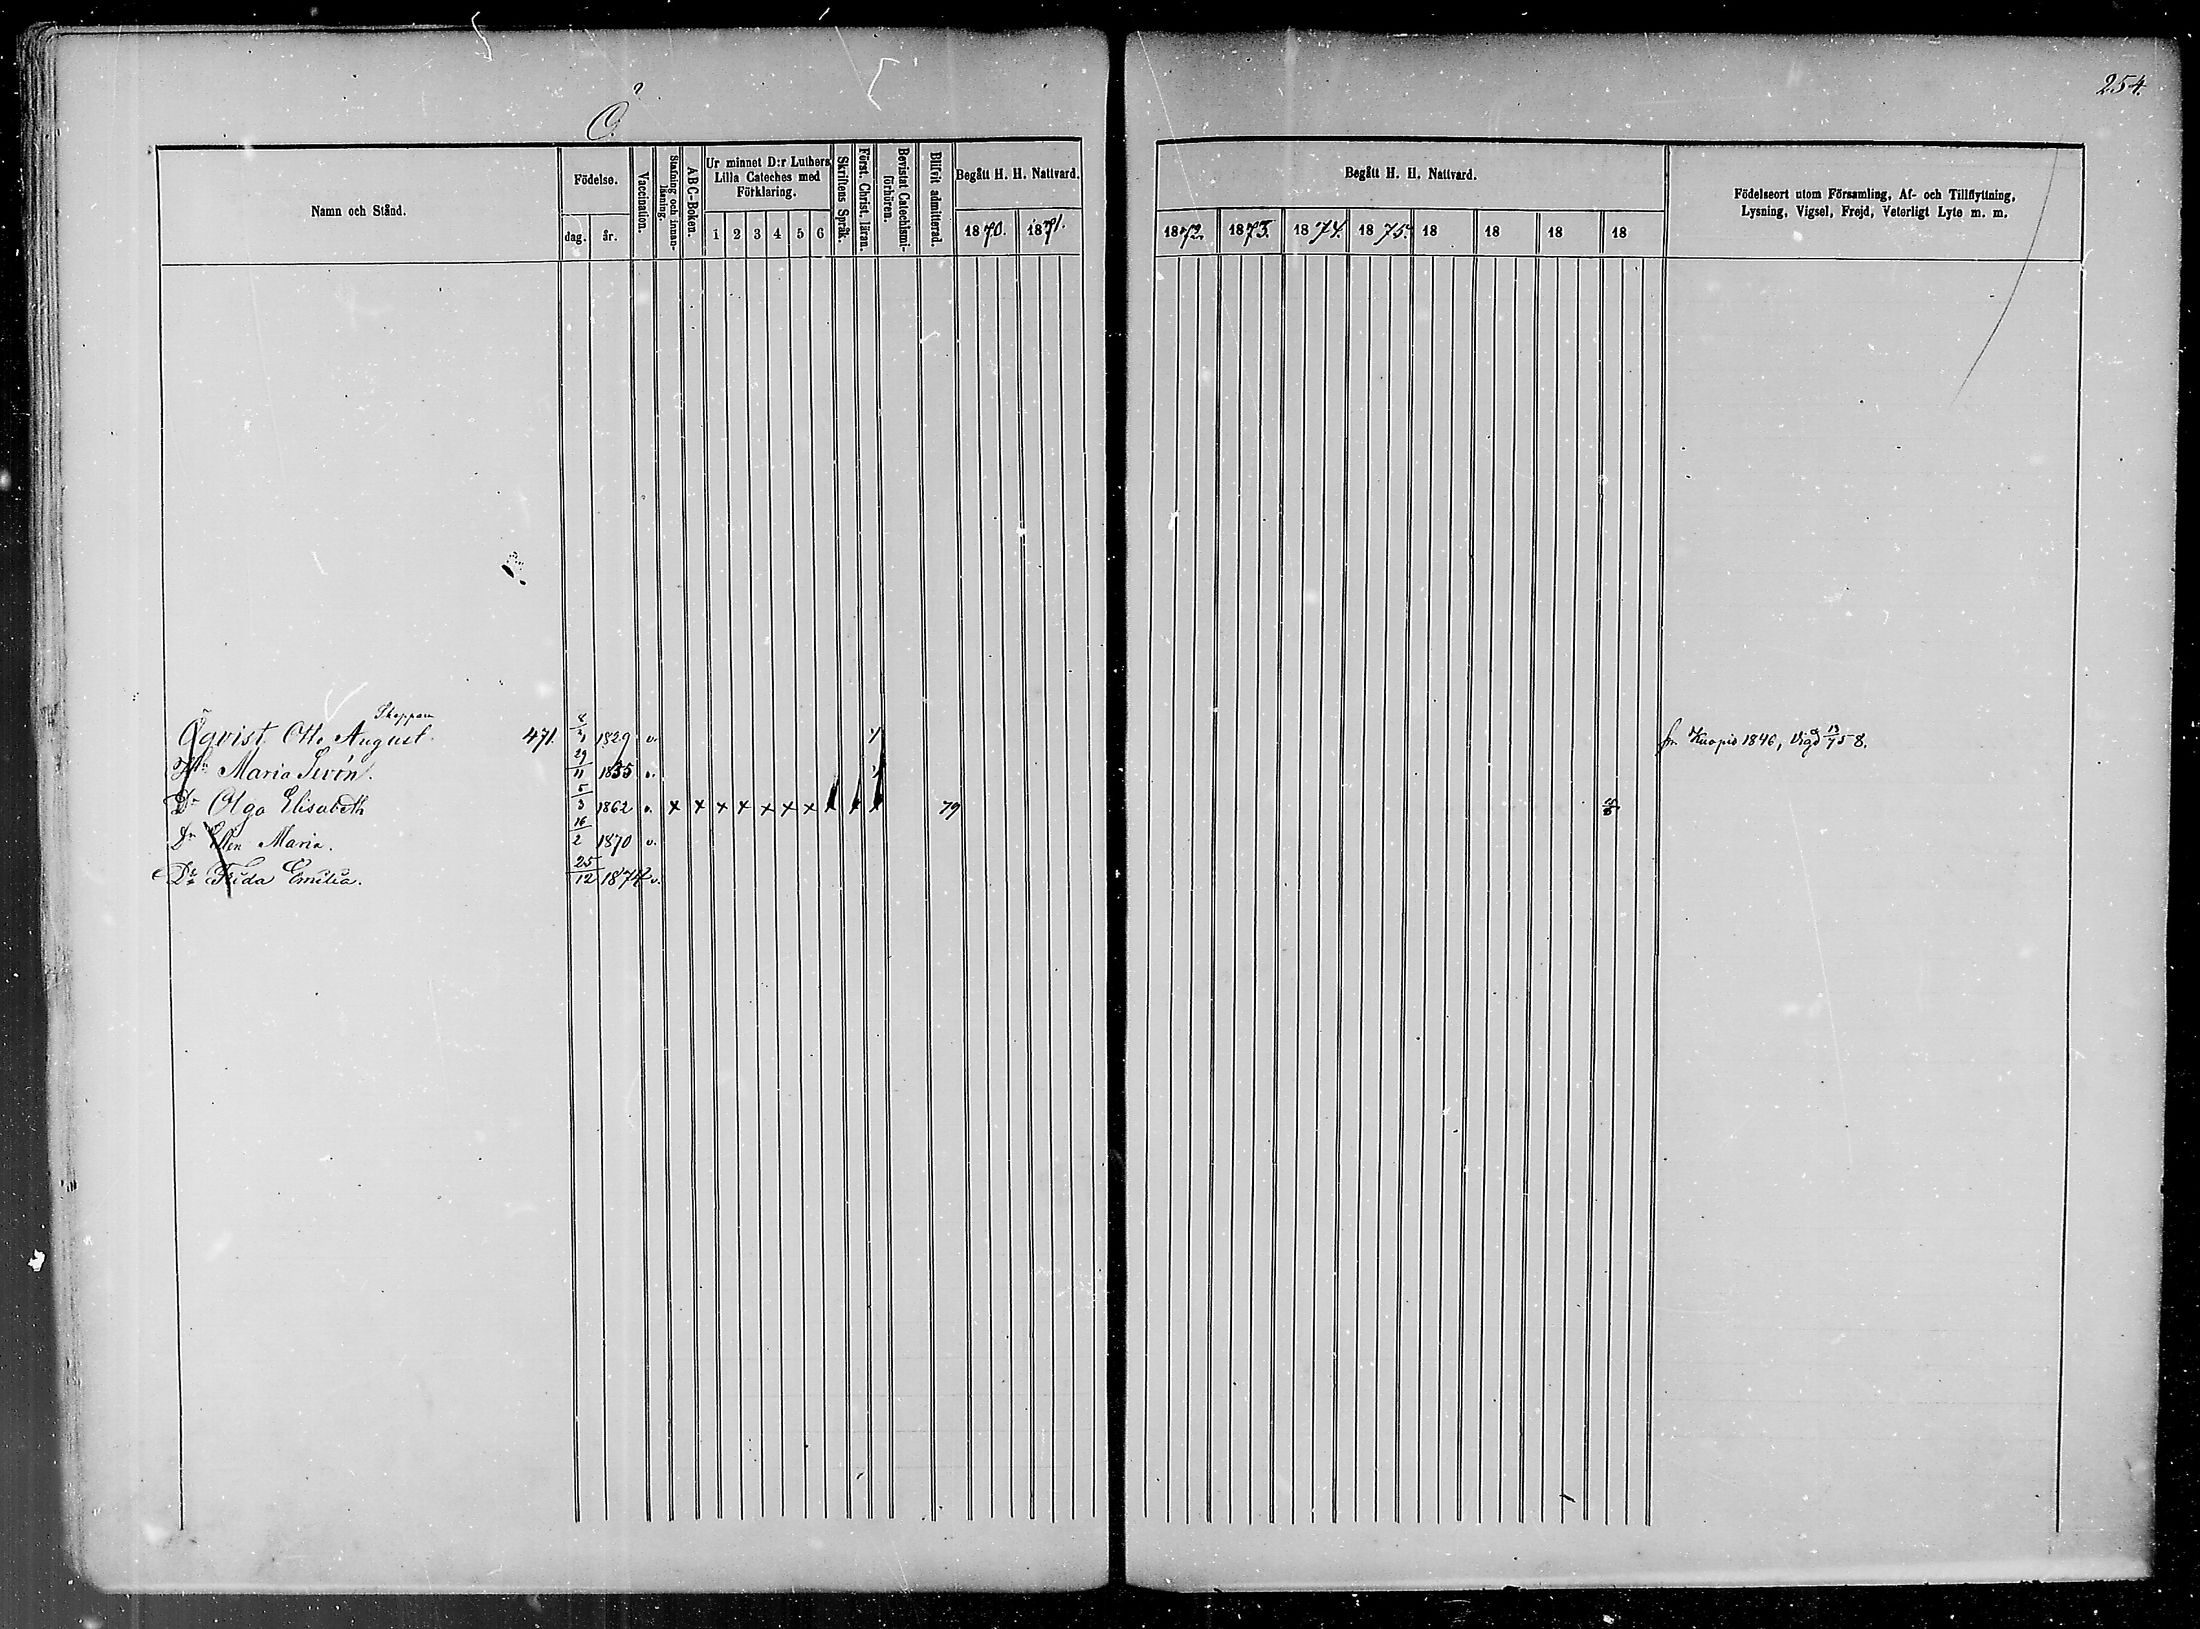 Ö.
254.
Namn och Stånd.
Födelse.
dag.
år.
Vaccination.
Stafning och innanläsning.
ABC-Boken.
Ur minnet D:r Luthers Lilla Cateches med Förklaring.
1 2 3 4 5 6
Skriftens Språk.
Först. Christ. läran.
Bevistat Catechismiförhören.
Blifvit admitterad.
Begått H. H. Nattvard.
1870. 1871.
Begått H. H. Nattvard.
1872. 1873. 1874. 1875. 18 18 18 18
Födelseort utom Församling, Af- och Tillflyttning,
Lysning, Vigsel, Frejd, Veterligt Lyte m. m.
Skeppare
Öqvist Otto August. 471. 1829 v. fr. Kuopio 1846, Vigd 13/7 58.
Maria 29/11 1835 v.
Dr Olga Elisabeth 5/3 1862 v. x x x x x x x 79
Dr Ellen Maria. 16/2 1870 v.
Dr Frida Emilia. 25/12 1874 v.